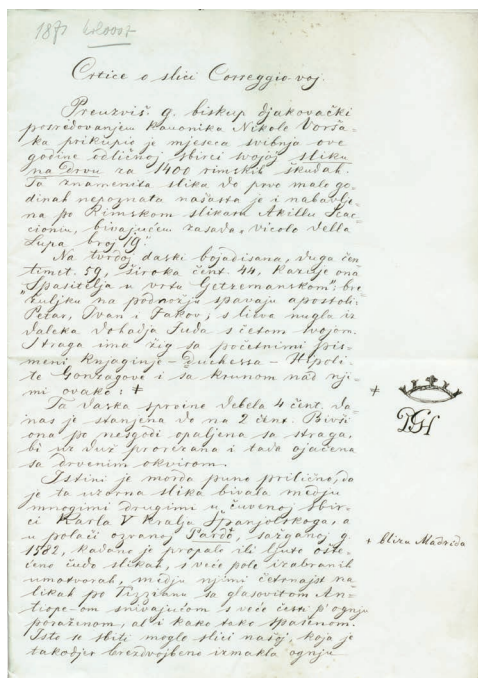 187 kolovoz
Crtice o slici Correggio-voj.
Preuzviš. g. biskup djakovački
posredovanjem kanonika Nikole Vorša-
ka prikupio je mjeseca svibnja ove
godine odličnoj sbirci svojoj sliku
na drvu za 1400 rimskih škudah.
Ta znamenita slika do prvo malo go-
dinah nepoznata našasta je i nabavlje-
na po Rimskom slikaru Akillu Scac-
cioniu, bivajućem zasada, vicolo della
Lupa broj 19.
Na tvrdoj daski bojadisana, duga čen-
timet. 59, široka čent. 44, kazuje ona
"Spasitelja u vrtu Getzemanskom"; bre-
žuljku na podnožju spavaju apostoli:
Petar, Ivan i Jakov, s lieva nugla iz
daleka dohadja Juda s četom svojom.
Straga ima žig sa početnimi pis-
meni knjaginje - duchessa - Hipoli-
te Gonzagove i sa krunom nad nji-
mi ovako: ǂ
ǂ
GH
Ta daska sprvine debela 4 čent. da-
nas je stanjena do na 2 čent. Bivši
ona po nesgodi opaljena sa straga,
bi uz duž prorezana i tada ojačena
sa drvenim okvirom.
Istini je morda puno prilično, da
je ta uzorna slika bivala medju
mnogimi drugimi u čuvenoj sbir-
ci Karla V kralja Španjolskoga, a
u polači ozvanoj Pardo, sažganoj g.
+ blizu Madrida
1582, kadano je propalo ili ljuto ošte-
ćeno čudo slikah, i veće pole izabranih
umotvorah, medju njimi četrnajst na
likah po Tizzianu sa glasovitom An-
tiope-om snivajućom s veće česti p'ognju
poraženom, al i kako tako spašenom.
Isto se sbiti moglo slici našoj, koja je
takodjer brezdvojbeno izmakla ognju